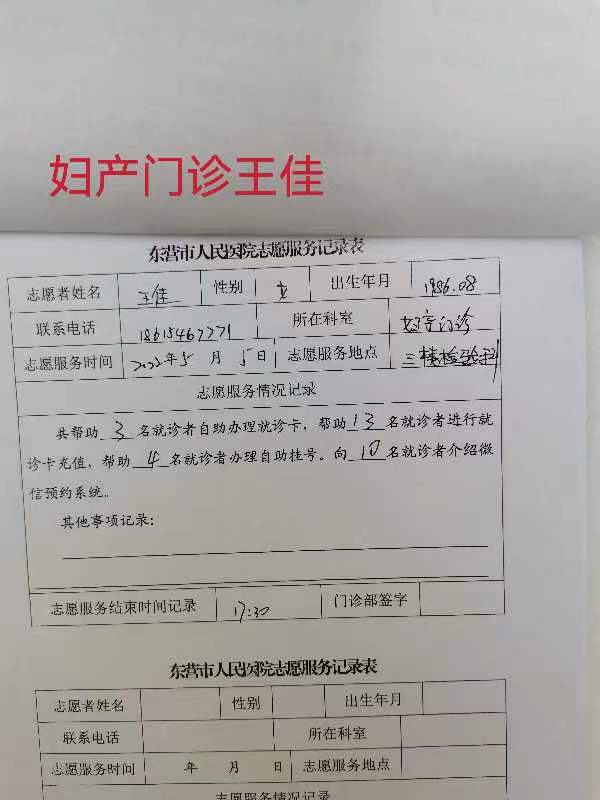 妇产门诊王佳
东营市人民医院志愿服务记录表
志愿者姓名 王佳 性别 女 出生年月 1986.08
联系电话 18615467771 所在科室 妇产门诊
志愿服务时间 2022年5月5日 志愿服务地点 三楼检验科
志愿服务情况记录
共帮助3名就诊者自助办理就诊卡，帮助13名就诊者进行就
诊卡充值，帮助4名就诊者办理自助挂号。向10名就诊者介绍微
信预约系统。
其他事项记录：
志愿服务结束时间记录 17:30 门诊部签字
东营市人民医院志愿服务记录表
志愿者姓名 性别 出生年月
联系电话 所在科室
志愿服务时间 年 月 日 志愿服务地点
志愿服务情况记录